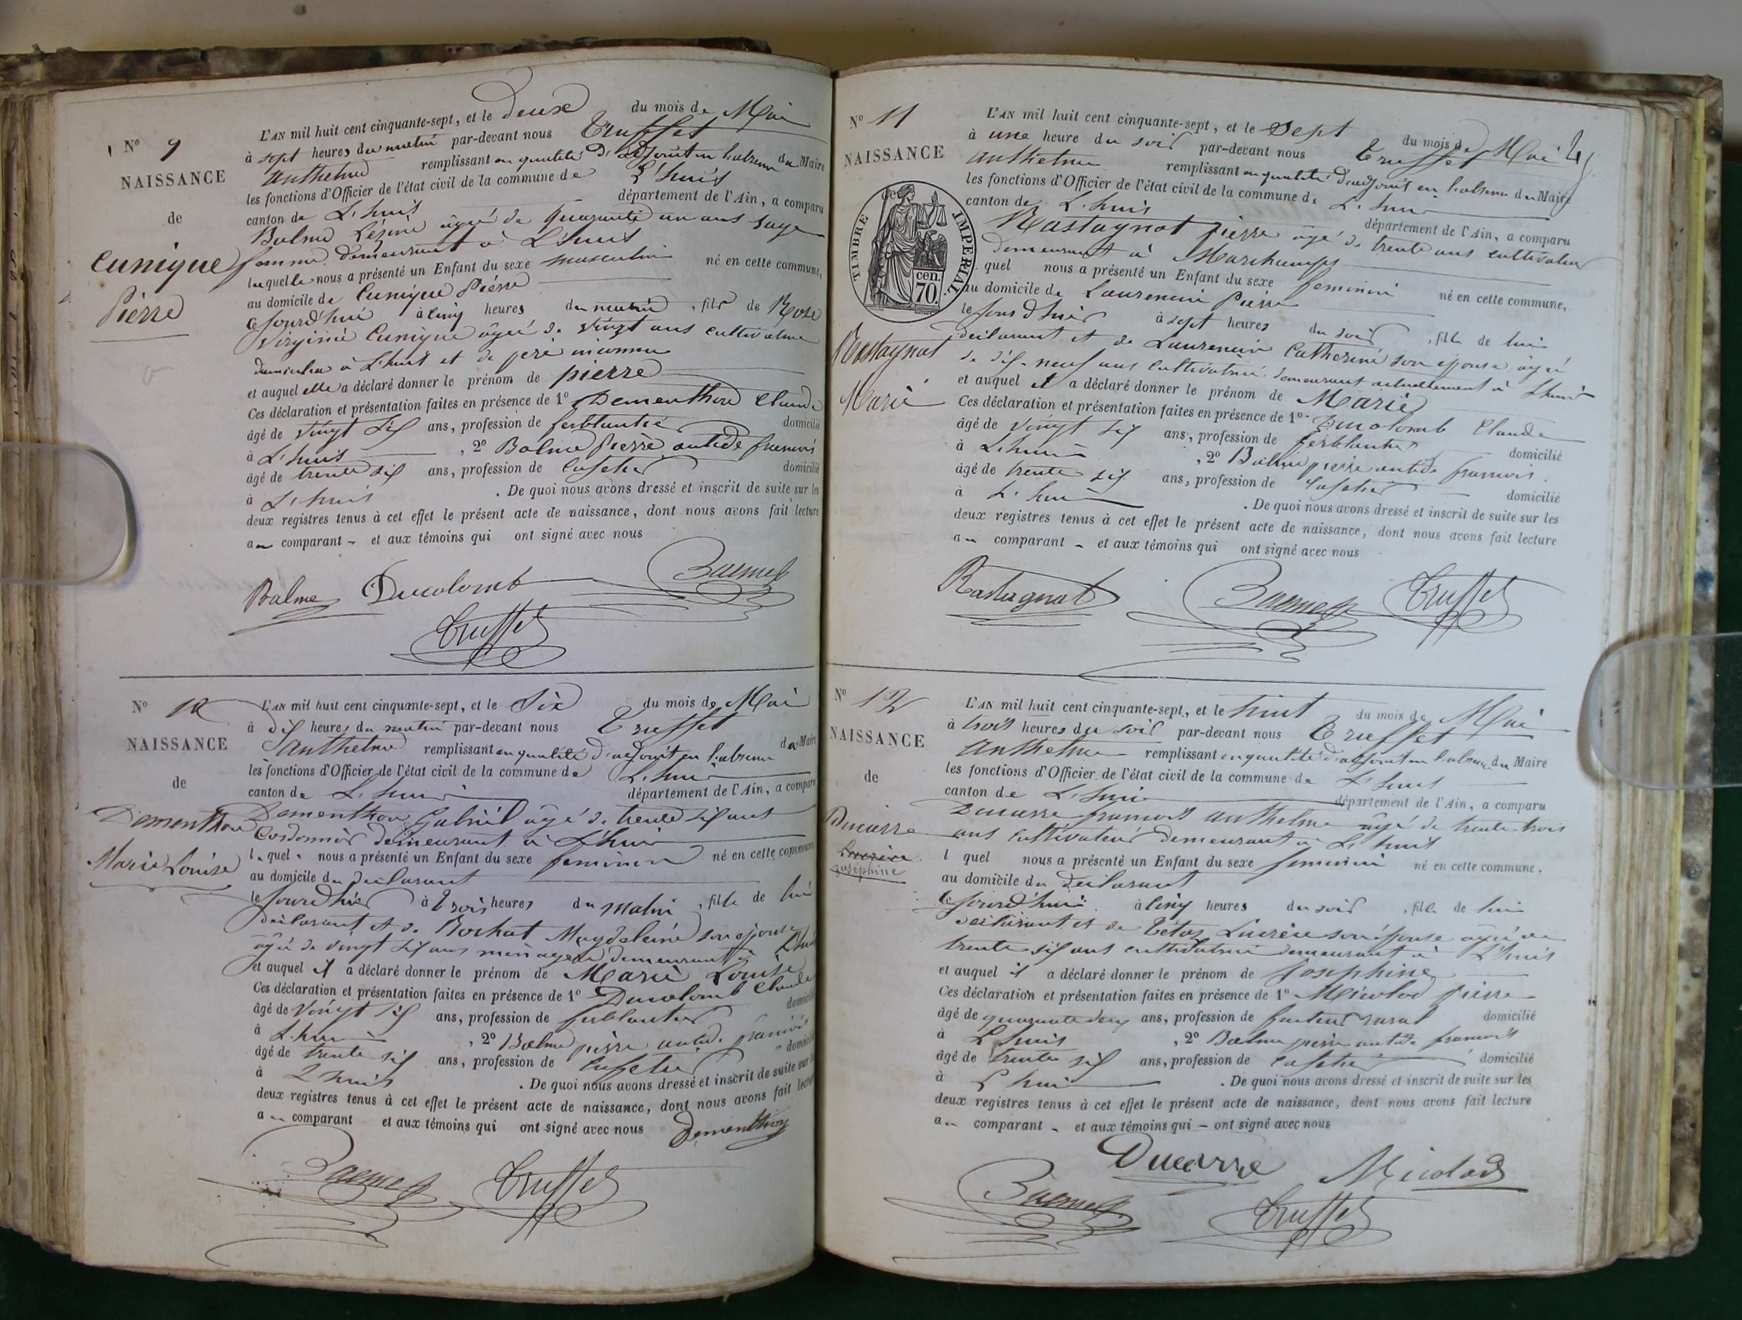 N° 9
NAISSANCE
de
Cunique
Pierre
L'AN mil huit cent cinquante-sept, et le deux du mois de Mai
à sept heures du matin par-devant nous Truffet
Anthelme remplissant en qualité d'adjoint en l'absence du Maire
les fonctions d'Officier de l'état civil de la commune de L'huis
canton de L'huis département de l'Ain, a comparu
Balme âgée de quarante un ans sage
femme demeurant à L'huis
laquelle nous a présenté un Enfant du sexe masculin né en cette commune,
au domicile de Cunique Pierre
ce jourd'hui à cinq heures du matin, fils de Rose
Virginie Cunique âgée de vingt ans cultivatrice
domiciliée à L'huis et de père inconnu
et auquel elle a déclaré donner le prénom de pierre
Ces déclaration et présentation faites en présence de 1° Claude
âgé de vingt six ans, profession de ferblantier domicilié
à L'huis, 2° Balme Pierre antide francois
âgé de trente six ans, profession de Cafetier domicilié
à L'huis. De quoi nous avons dressé et inscrit de suite sur les
deux registres tenus à cet effet le présent acte de naissance, dont nous avons fait lecture
au comparant et aux témoins qui ont signé avec nous
Balme Ducolomb
Truffet
N° 10
NAISSANCE
de
Dementhon
Marie Louise
L'AN mil huit cent cinquante-sept, et le Six du mois de Mai
à dix heures du matin par-devant nous Truffet
Anthelme remplissant en qualité d'adjoint en l'absence du Maire
les fonctions d'Officier de l'état civil de la commune de L'huis
canton de L'huis département de l'Ain, a comparu
Dementhon Gabriel âgé de trente six ans
Cordonnier demeurant à L'huis
lequel nous a présenté un Enfant du sexe feminin né en cette commune
au domicile du declarant
le jourd'hui à trois heures du matin, fille de lui
declarant et de Rochat Magdeleine son epouse
âgée de vingt six ans ménagère demeurant à L'huis
et auquel il a déclaré donner le prénom de Marie Louise
Ces déclaration et présentation faites en présence de 1° Ducolomb Claude
âgé de vingt six ans, profession de ferblantier domicilié
à L'huis, 2° Balme pierre antide francois
âgé de trente six ans, profession de Cafetier domicilié
à L'huis. De quoi nous avons dressé et inscrit de suite sur les
deux registres tenus à cet effet le présent acte de naissance, dont nous avons fait lecture
au comparant et aux témoins qui ont signé avec nous Dementhon
Truffet
N° 11
NAISSANCE
de
TIMBRE IMPERIAL
70 cen.
Rastagnat
Marie
L'AN mil huit cent cinquante-sept, et le Sept du mois de Mai
à une heure du soir par-devant nous Truffet
Anthelme remplissant en qualité d'adjoint en l'absence du Maire
les fonctions d'Officier de l'état civil de la commune de L'huis
canton de L'huis département de l'Ain, a comparu
Rastagnat pierre âgé de trente ans cultivateur
demeurant à Marchamp
quel nous a présenté un Enfant du sexe feminin né en cette commune,
au domicile de Laurencin Pierre
le jourd'hier à sept heures du soir, fille de lui
declarant et de Laurencin Catherine son epouse âgée
de dix-neuf ans cultivatrice demeurant actuellement à L'huis
et auquel il a déclaré donner le prénom de Marie
Ces déclaration et présentation faites en présence de 1° Ducolomb Claude
âgé de vingt six ans, profession de ferblantier domicilié
à L'huis, 2° Balme pierre antide francois
âgé de trente six ans, profession de Cafetier domicilié
à L'huis. De quoi nous avons dressé et inscrit de suite sur les
deux registres tenus à cet effet le présent acte de naissance, dont nous avons fait lecture
au comparant et aux témoins qui ont signé avec nous
Rastagnat Truffet
N° 12
NAISSANCE
de
Ducarre
Lucrèce
joséphine
L'AN mil huit cent cinquante-sept, et le huit du mois de Mai
à trois heures du soir par-devant nous Truffet
Anthelme remplissant en qualité d'adjoint en l'absence du Maire
les fonctions d'Officier de l'état civil de la commune de L'huis
canton de L'huis département de l'Ain, a comparu
Ducarre francois anthelme âgé de trente trois
ans cultivateur demeurant à L'huis
lquel nous a présenté un Enfant du sexe feminin né en cette commune,
au domicile du declarant
ce jourd'hui à cinq heures du soir, fille de lui
declarant et de Lucrèce son épouse âgée de
trente six ans cultivatrice demeurant à L'huis
et auquel il a déclaré donner le prénom de Josephine
Ces déclaration et présentation faites en présence de 1° Micolod pierre
âgé de quarante deux ans, profession de facteur rural domicilié
à L'huis, 2° Balme pierre antide francois
âgé de trente six ans, profession de Cafetier domicilié
à L'huis. De quoi nous avons dressé et inscrit de suite sur les
deux registres tenus à cet effet le présent acte de naissance, dont nous avons fait lecture
au comparant et aux témoins qui ont signé avec nous
Ducarre Micolod
Truffet